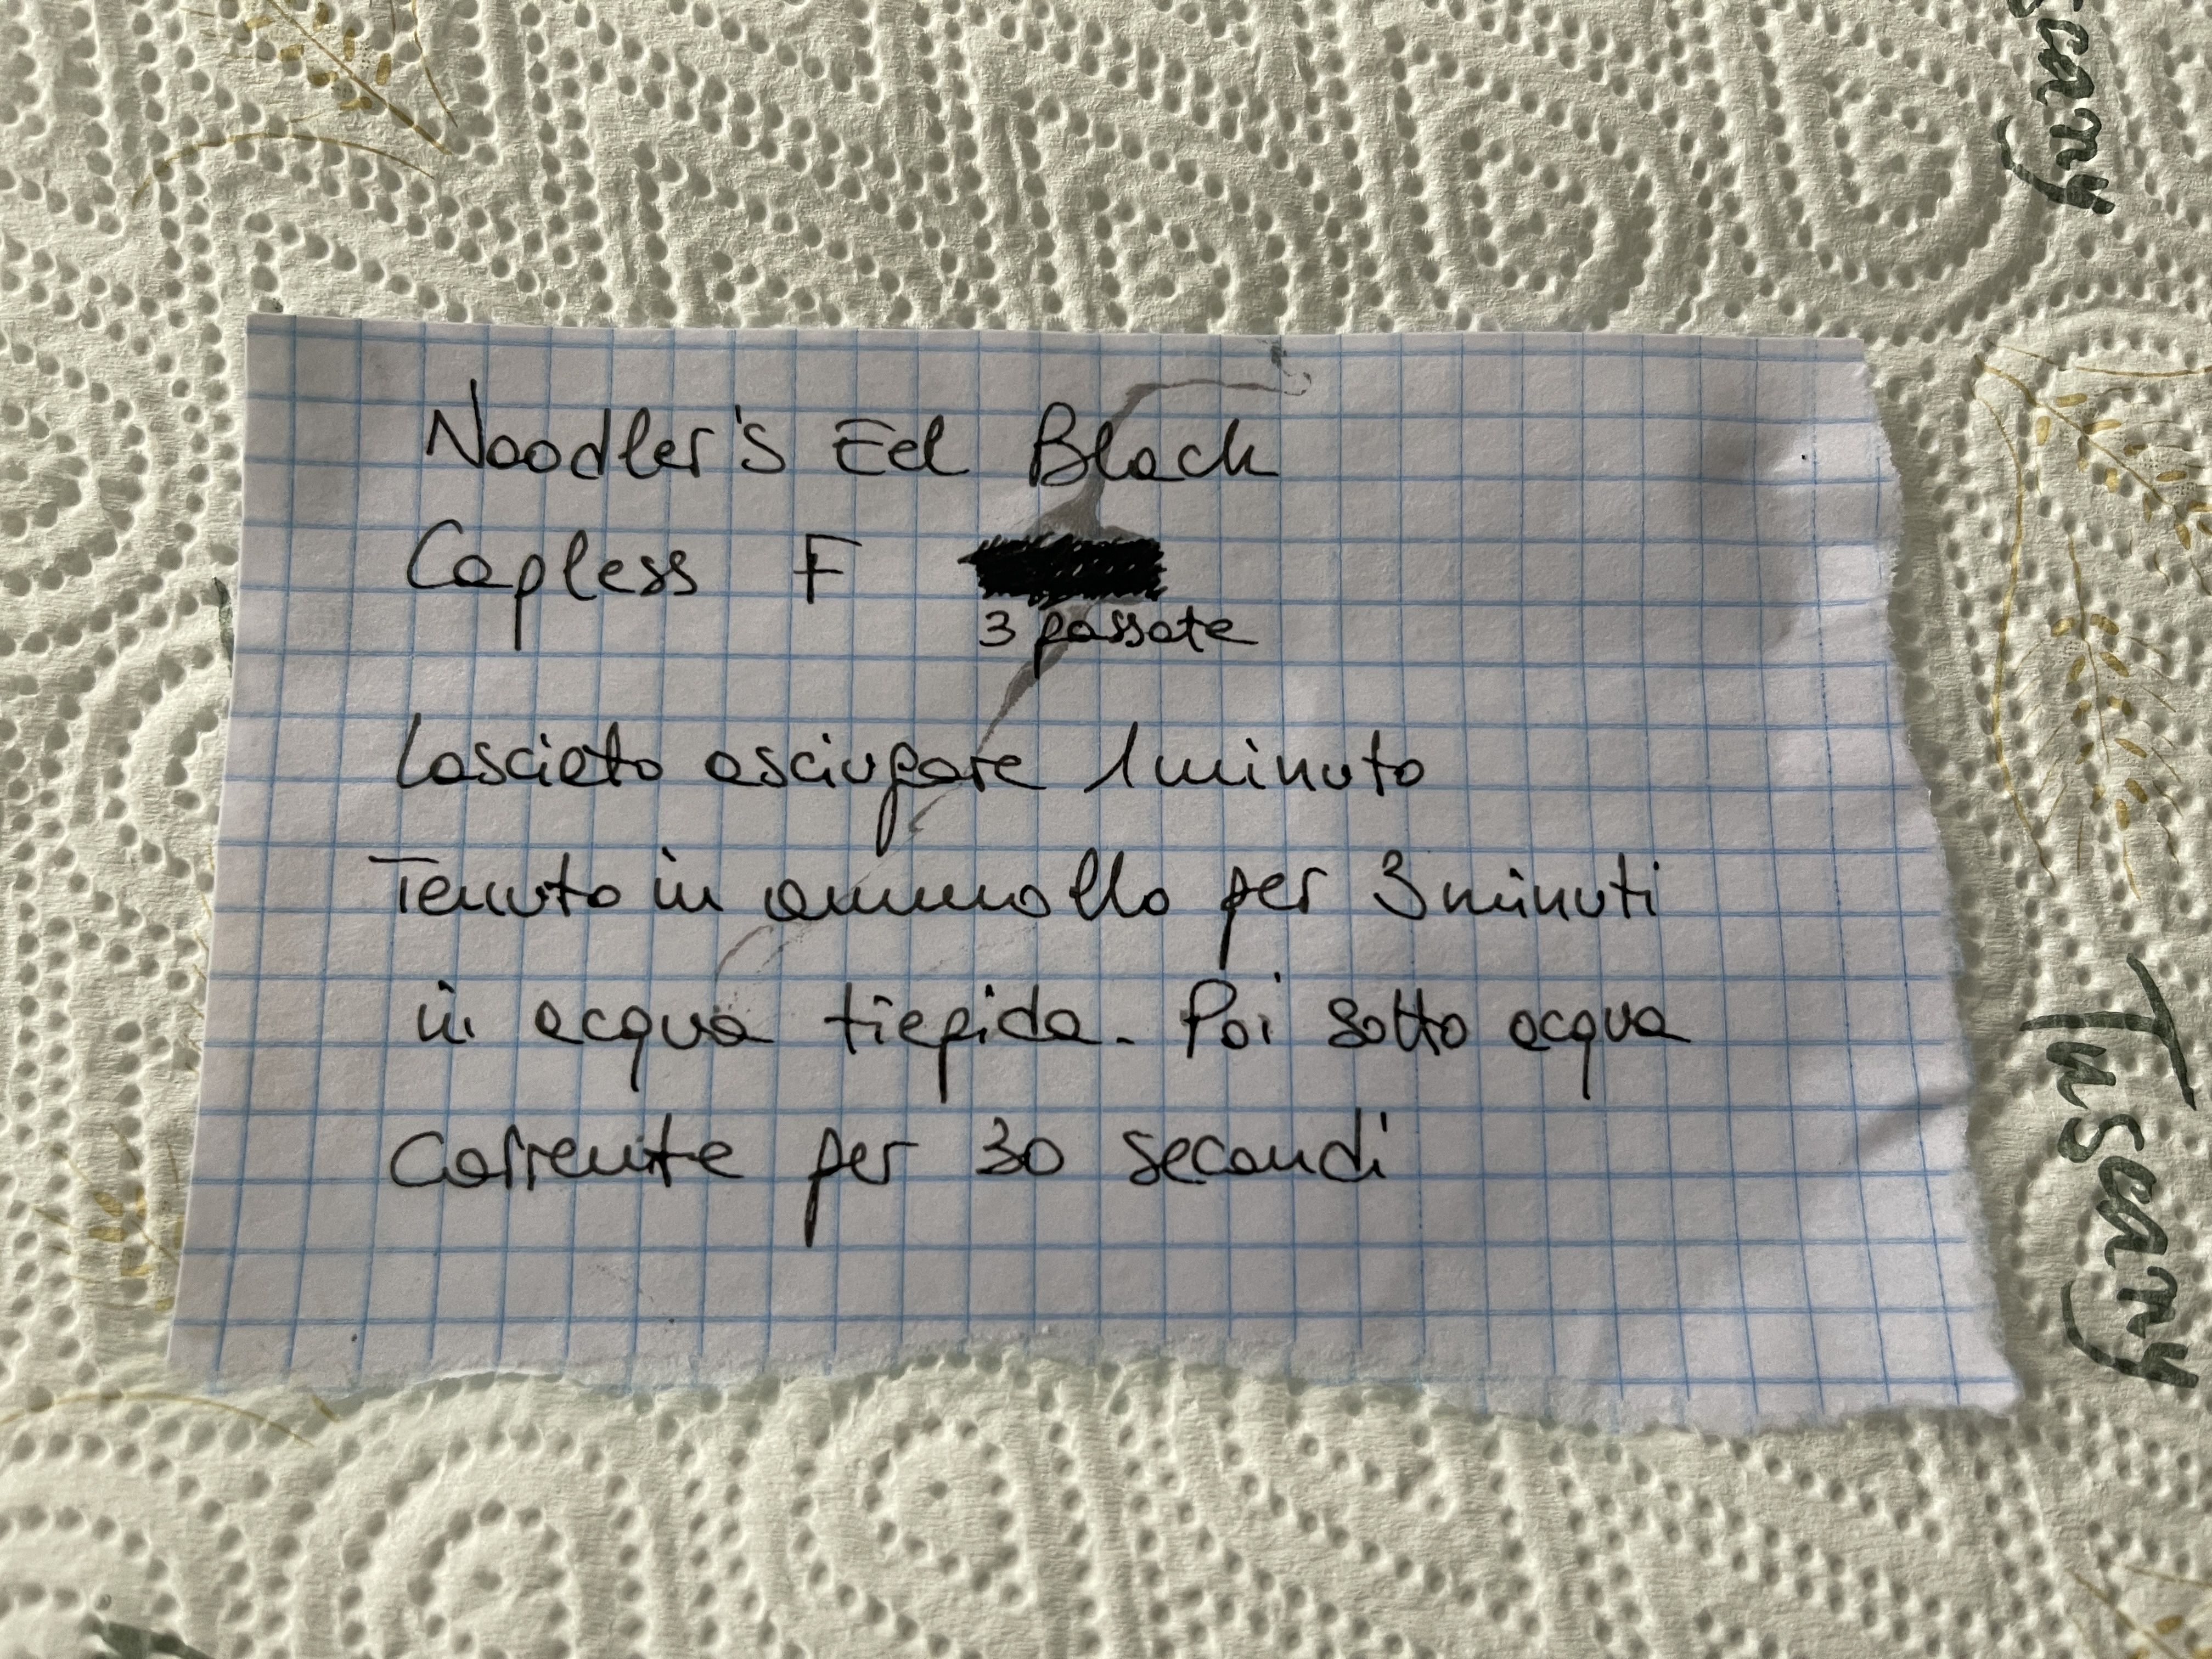 Noodler's Eel Black
Capless F
3 passate
Lasciato asciugare 1 minuto
Tenuto in ammollo per 3 minuti
in acqua tiepida. Poi sotto acqua
corrente per 30 secondi
scany
Tuscany